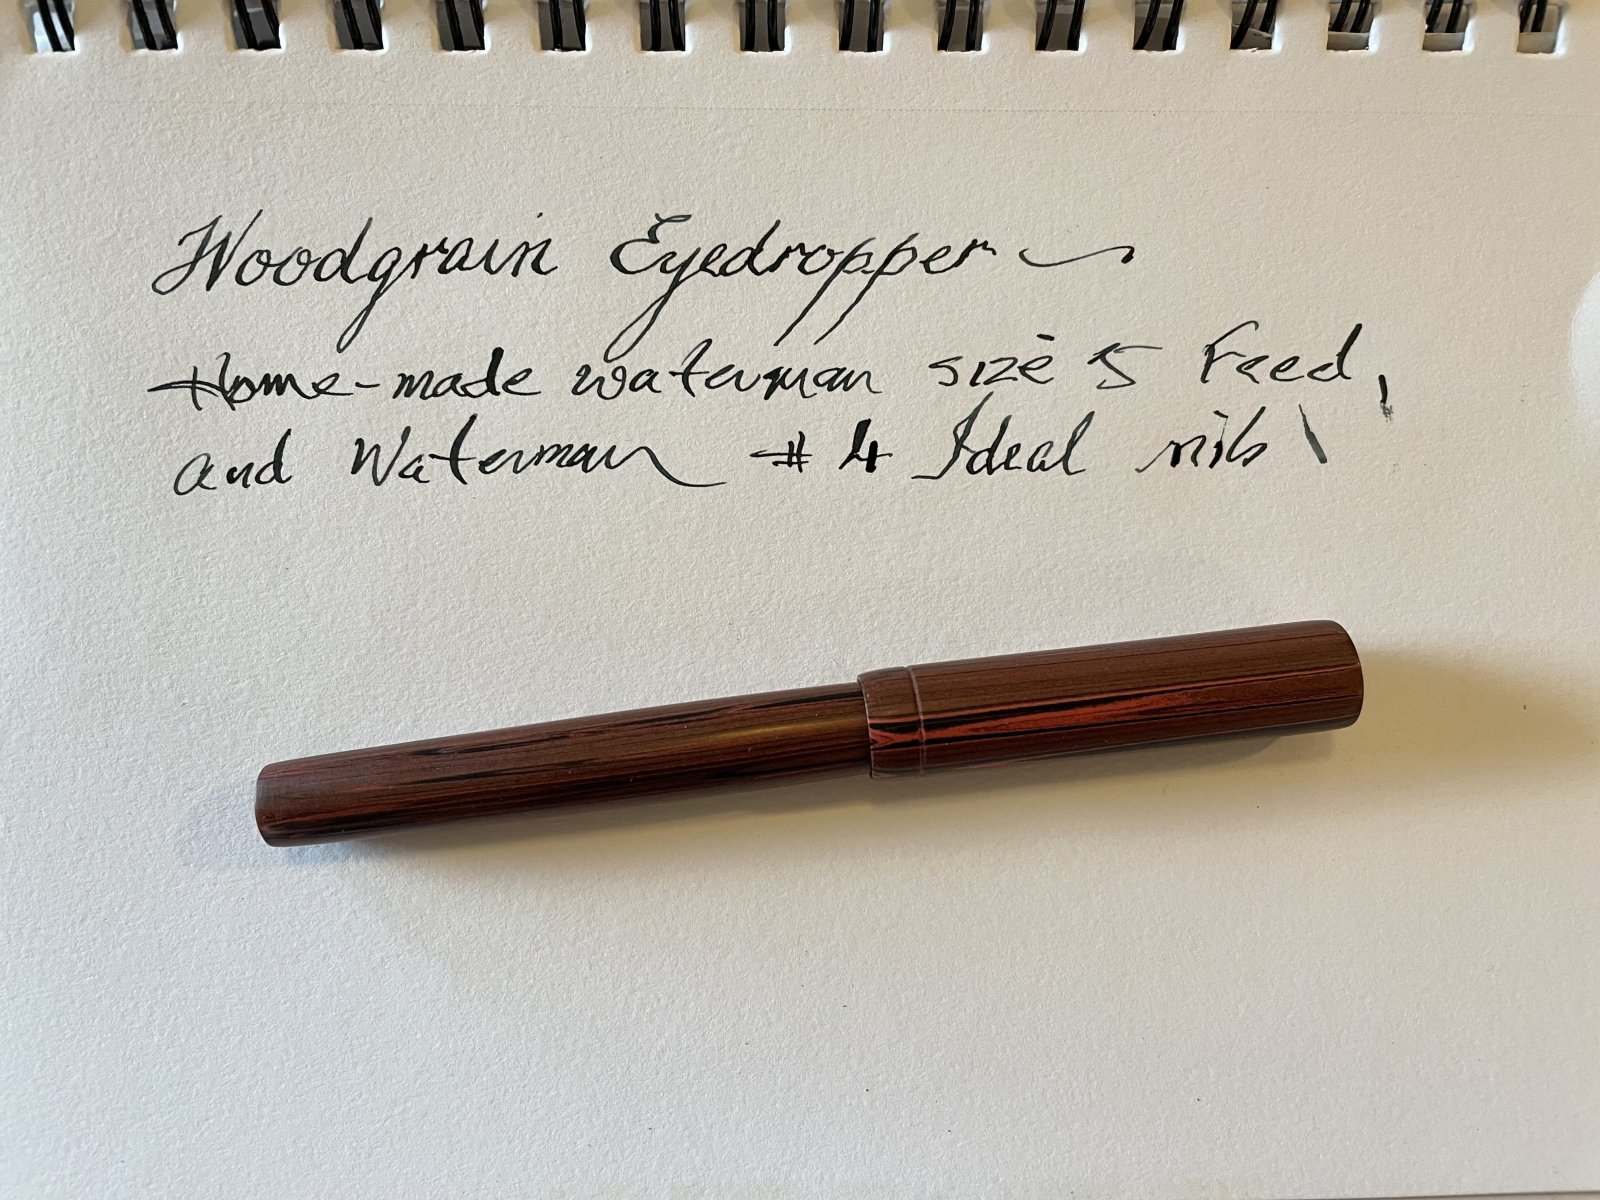 Woodgrain Eyedropper ~
Home-made waterman size 5 Feed,
and Waterman # 4 Ideal nib \